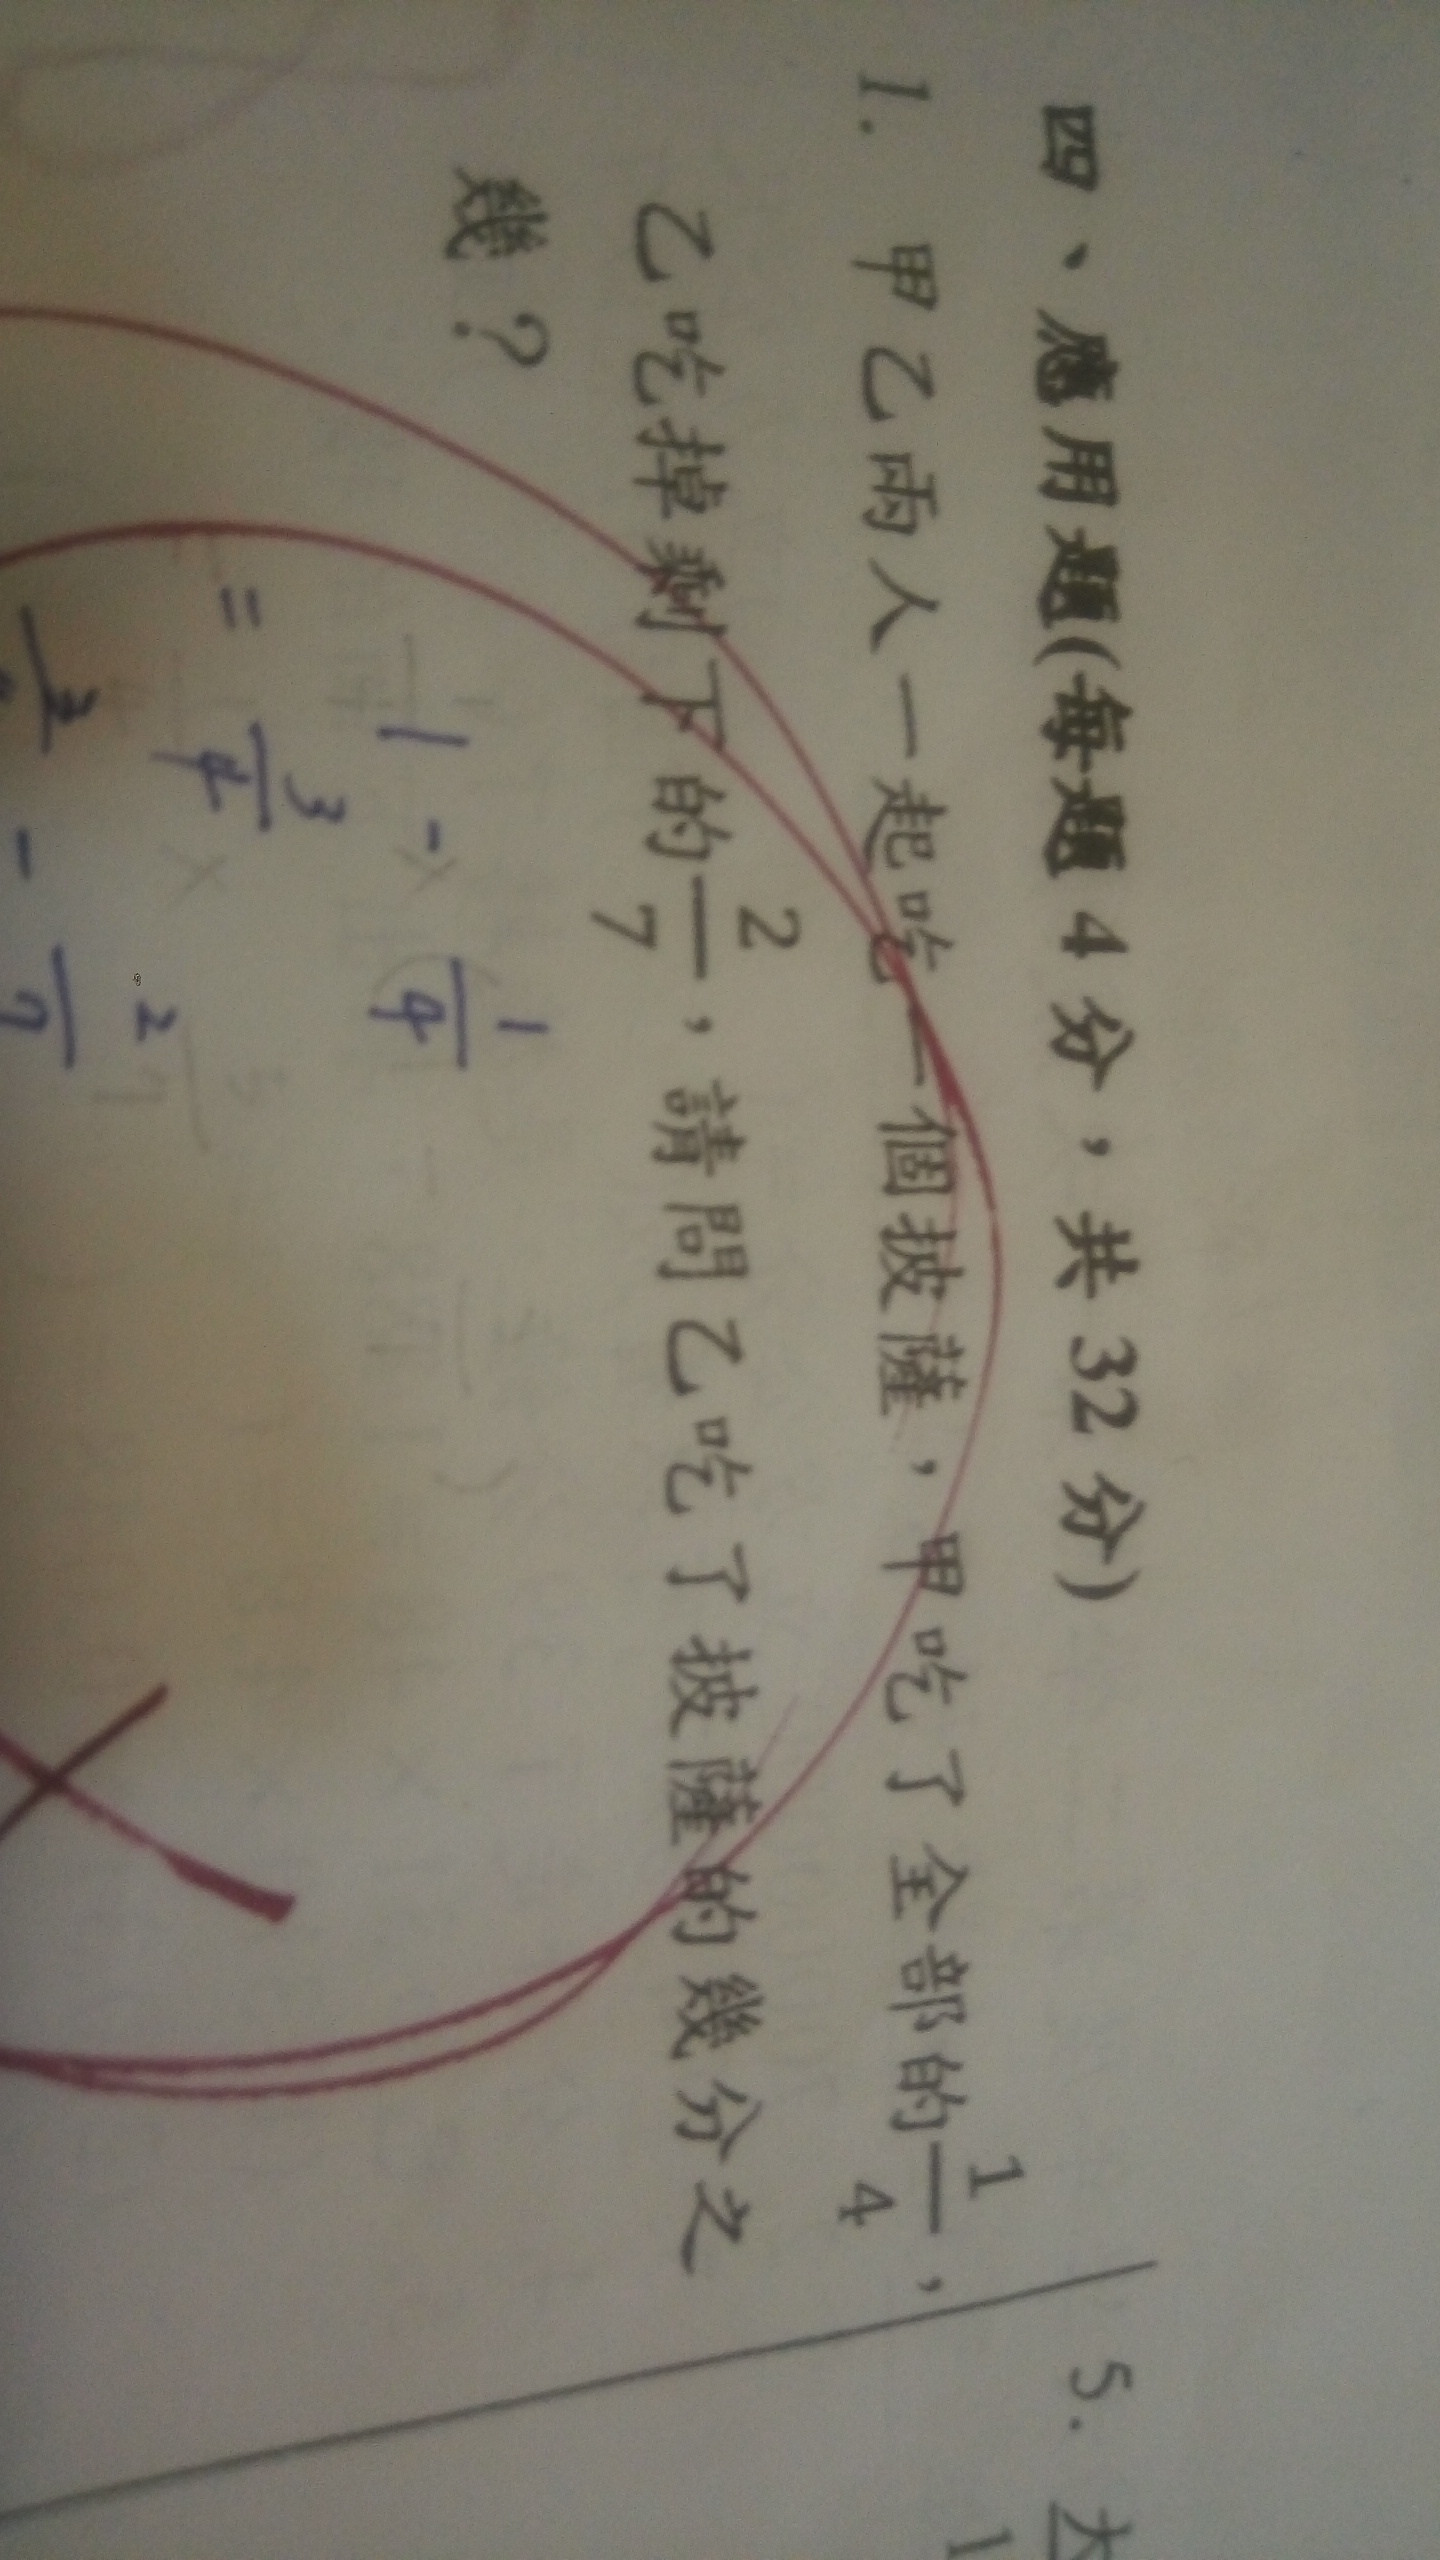 四、應用題(每題 4 分，共 32 分)
1. 甲乙兩人一起吃一個披薩，甲吃了全部的1/4，
乙吃掉剩下的2/7，請問乙吃了披薩的幾分之
幾？
1 - 1/4
= 3/4
3 - 2/7
5. 大
1